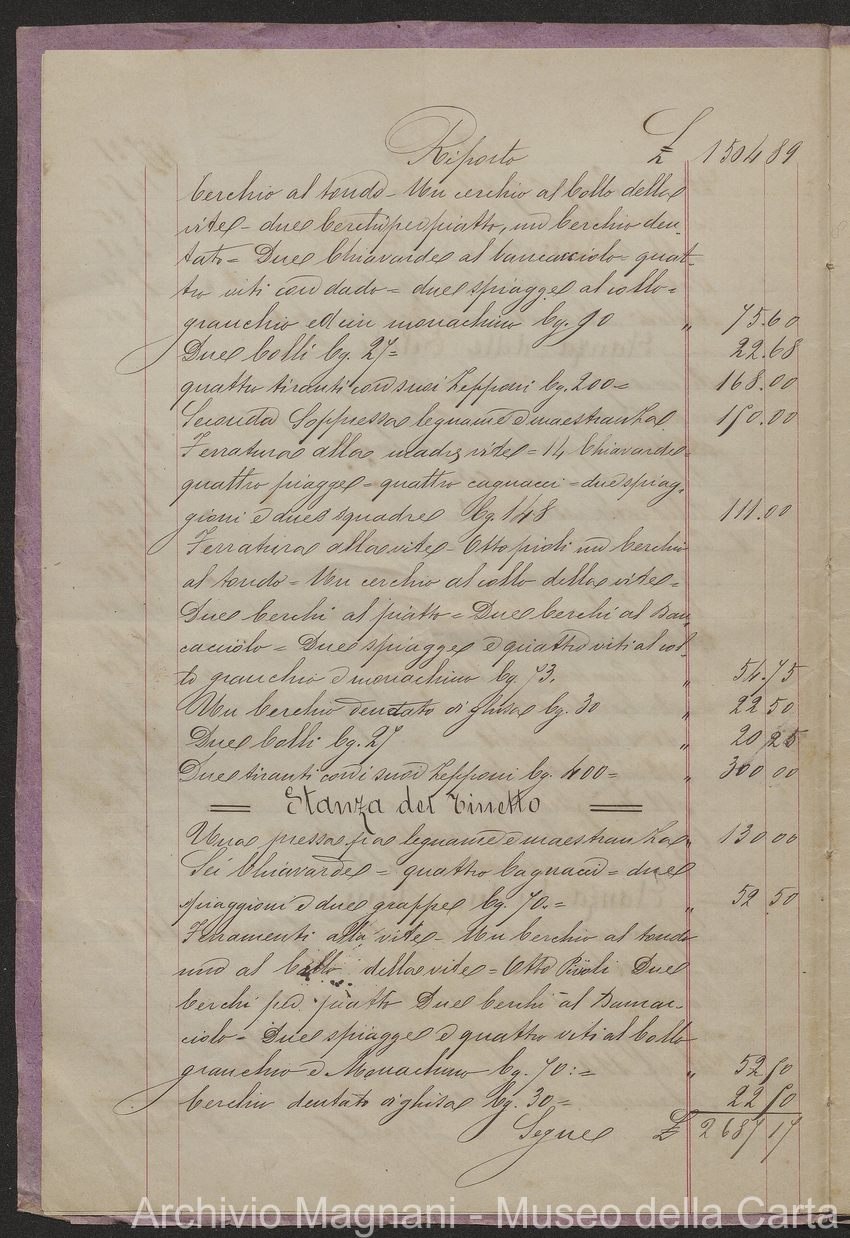 Riporto £ 1504 89
Cerchio al tondo – Un cerchio al Collo della
vite – due Cerchi per piatto, un Cerchio den-
tato = Due Chiavarde al bancacciolo = quat-
tro viti con dado = due spiagge al collo =
granchio ed un monachino Cg. 90 " 75.60
Due Colli Cg. 27 = 22.68
quattro tiranti con suoi Zepponi Cg. 200 = 168.00
Seconda Soppressa legname e maestranza 150.00
Ferratura alla madre vite = 14 Chiavarde =
quattro piagge = quattro cagnacci = due spiag-
gioni e due squadre Cg 148 111.00
Ferratura alla vite – Otto pioli un Cerchio
al tondo = Un cerchio al collo della vite =
Due Cerchi al piatto = Due Cerchi al Ban-
cacciolo = Due spiagge e quattro viti al col-
lo granchio e monachino Cg. 73. " 54.75
Un Cerchio dentato di ghisa Cg. 30 " 22 50
Due Colli Cg. 27 " 20 25
Due tiranti con i suoi Zepponi Cg. 400 = " 300 00
Stanza del Tinetto
Una pressa fra legname e maestranza " 130 00
Sei Chiavarde = quattro Cagnacci = due
spiaggioni e due grappe Cg. 70. = " 52 50
Ferramenti alla vite – Un Cerchio al tondo
uno al Collo della vite = Otto Pioli Due
Cerchi per piatto Due Cerchi al Bancac-
ciolo = Due spiagge e quattro viti al Collo
granchio e Monachino Cg. 70: = " 52 50
Cerchio dentato di ghisa Cg. 30 = 22 50
Segue £ 2687 17
Archivio Magnani - Museo della Carta